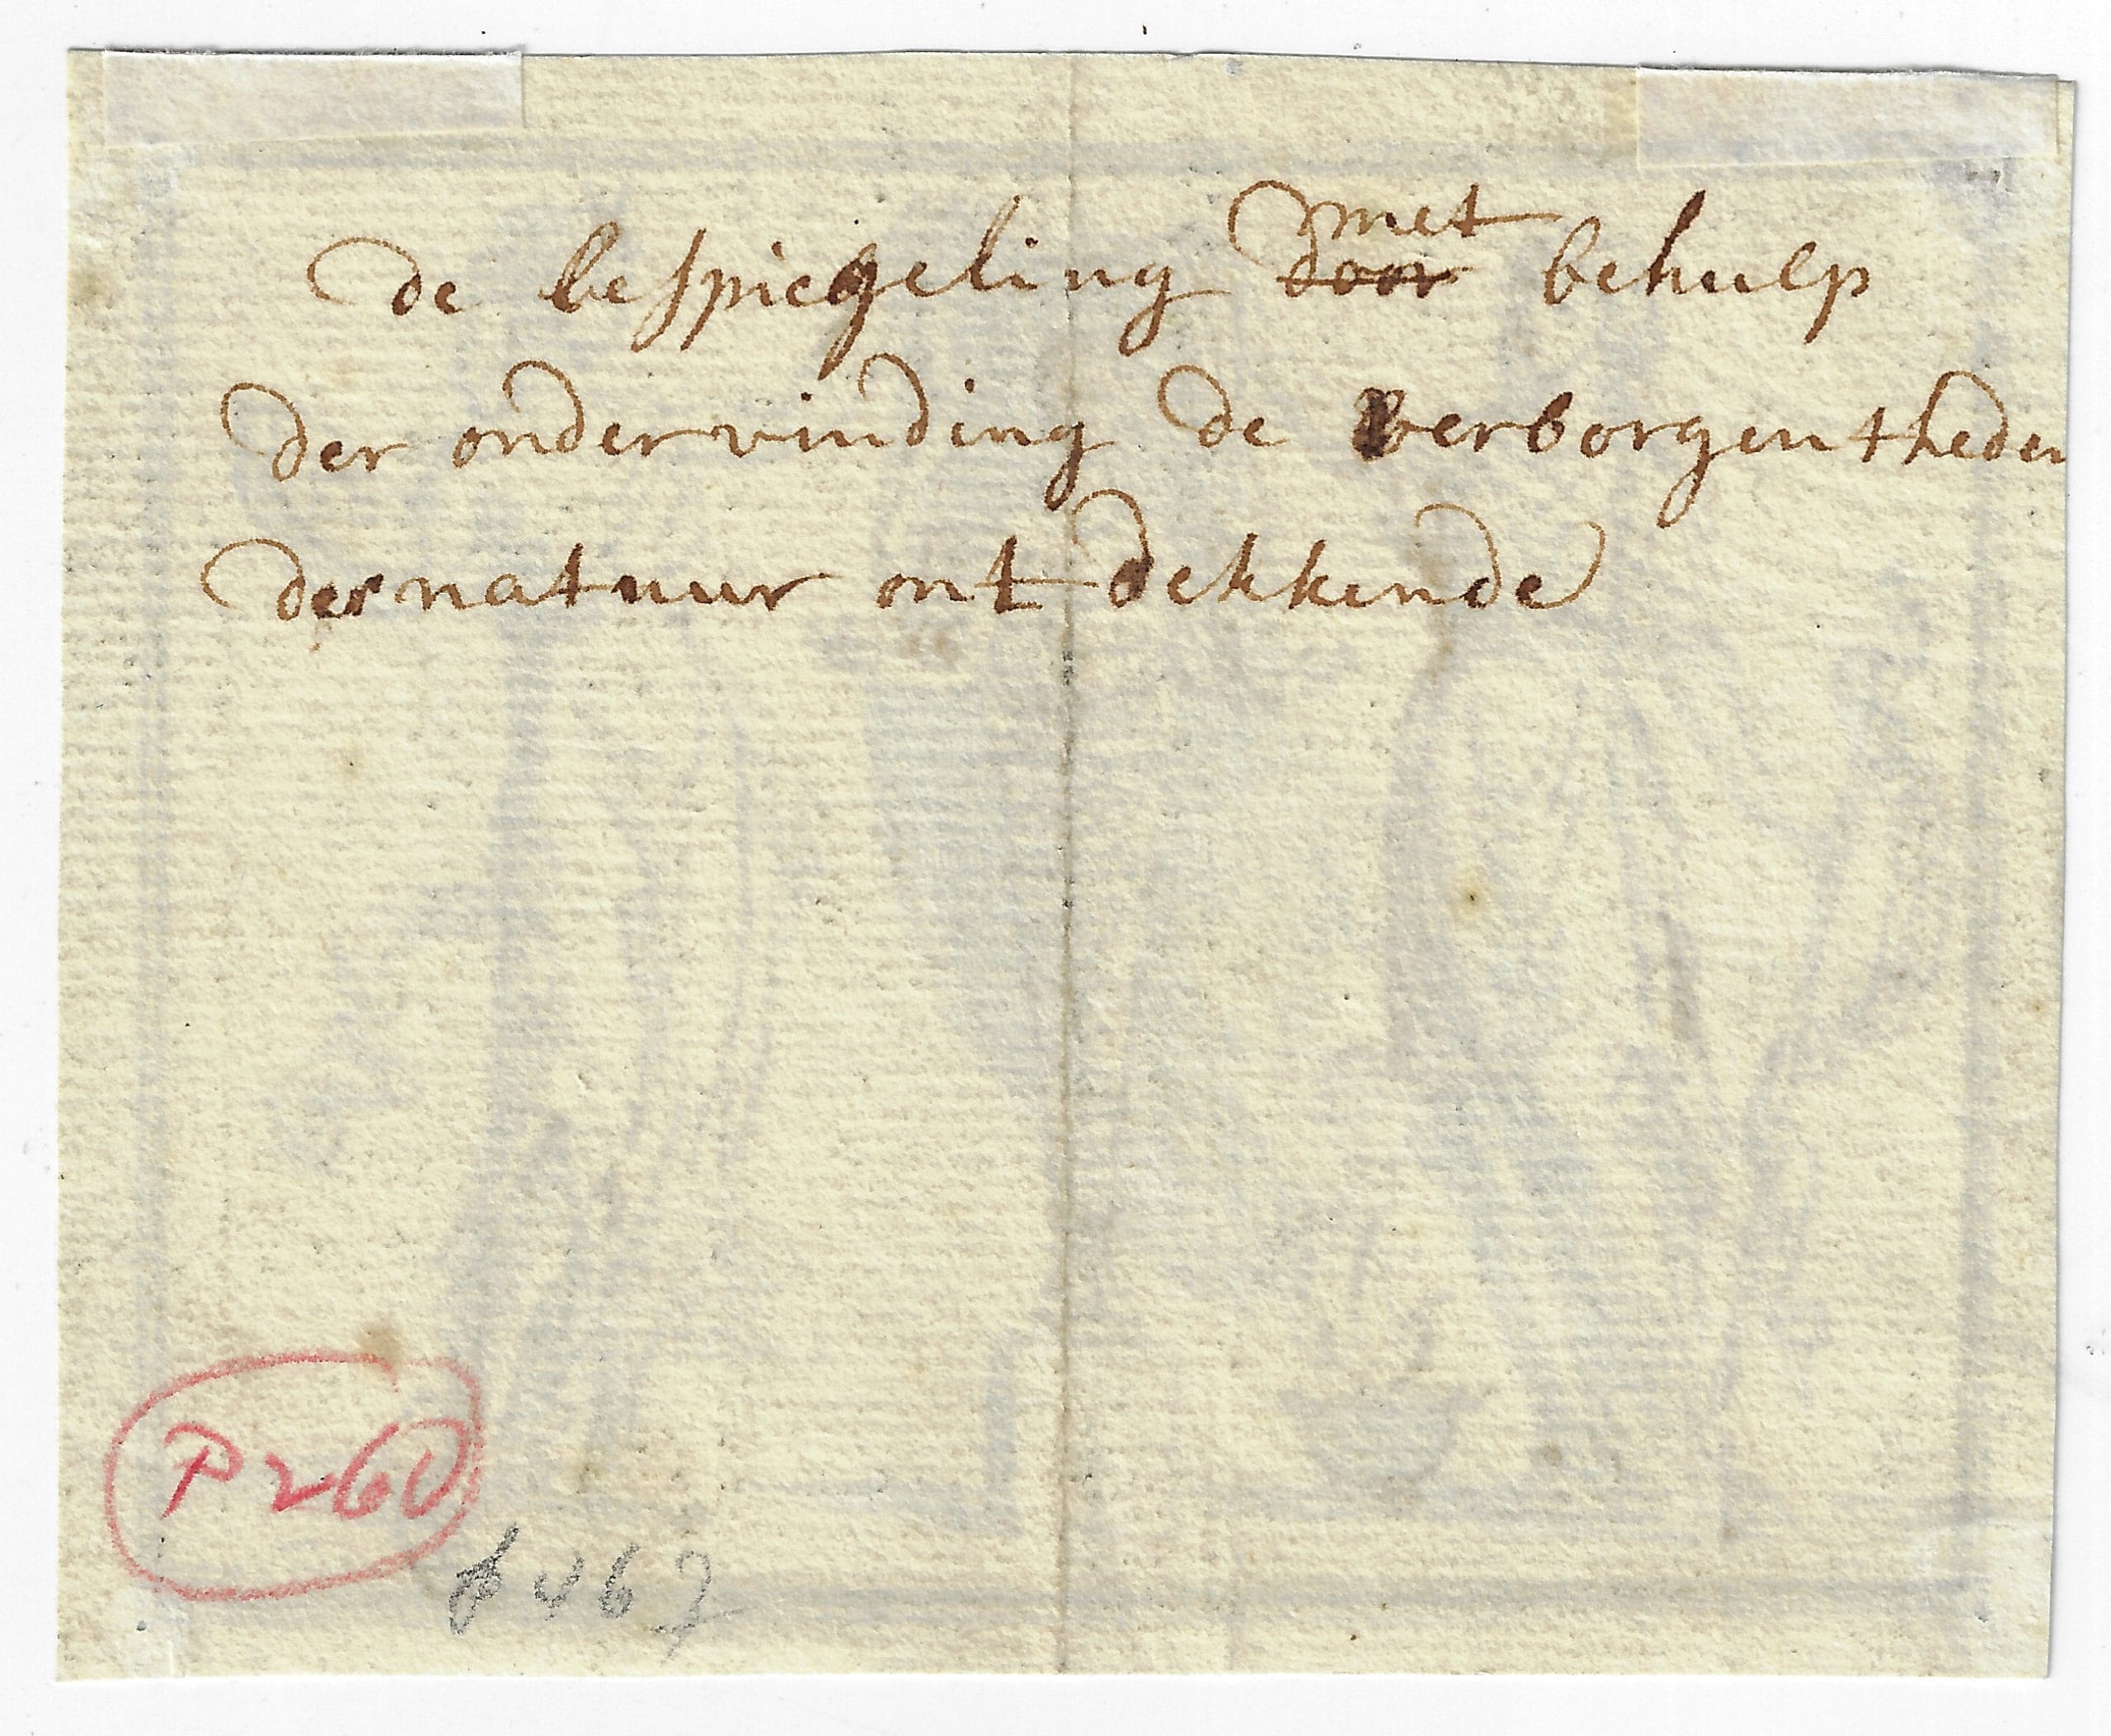 de bespiegeling met behulp
door
der ondervinding de verborgentheden
der natuur ont dekkende
P 260